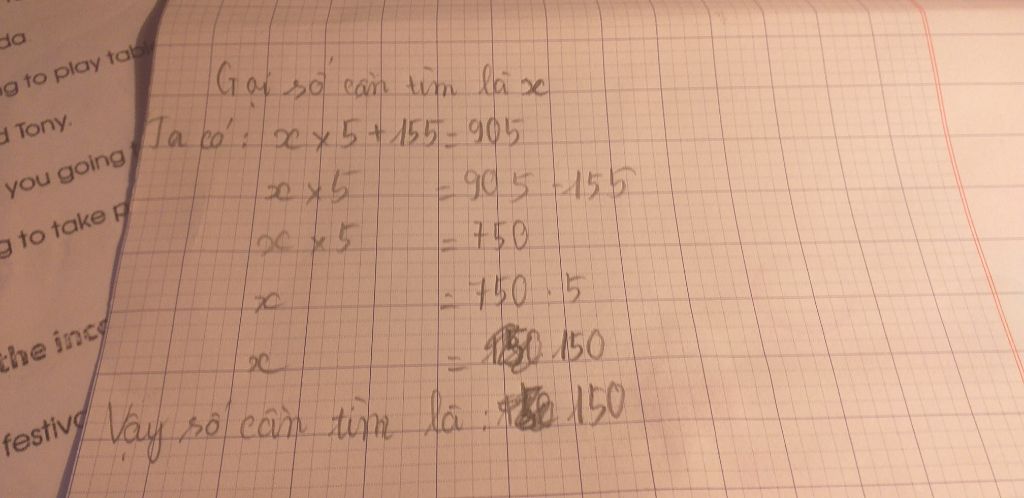 da
g to play tabl
d Tony.
you going
g to take p
the inc
festiv
Gọi số cần tìm là x
Ta có: x × 5 + 155 = 905
x × 5 = 905 - 155
x × 5 = 750
x = 750 : 5
x = 150
Vậy số cần tìm là : 150